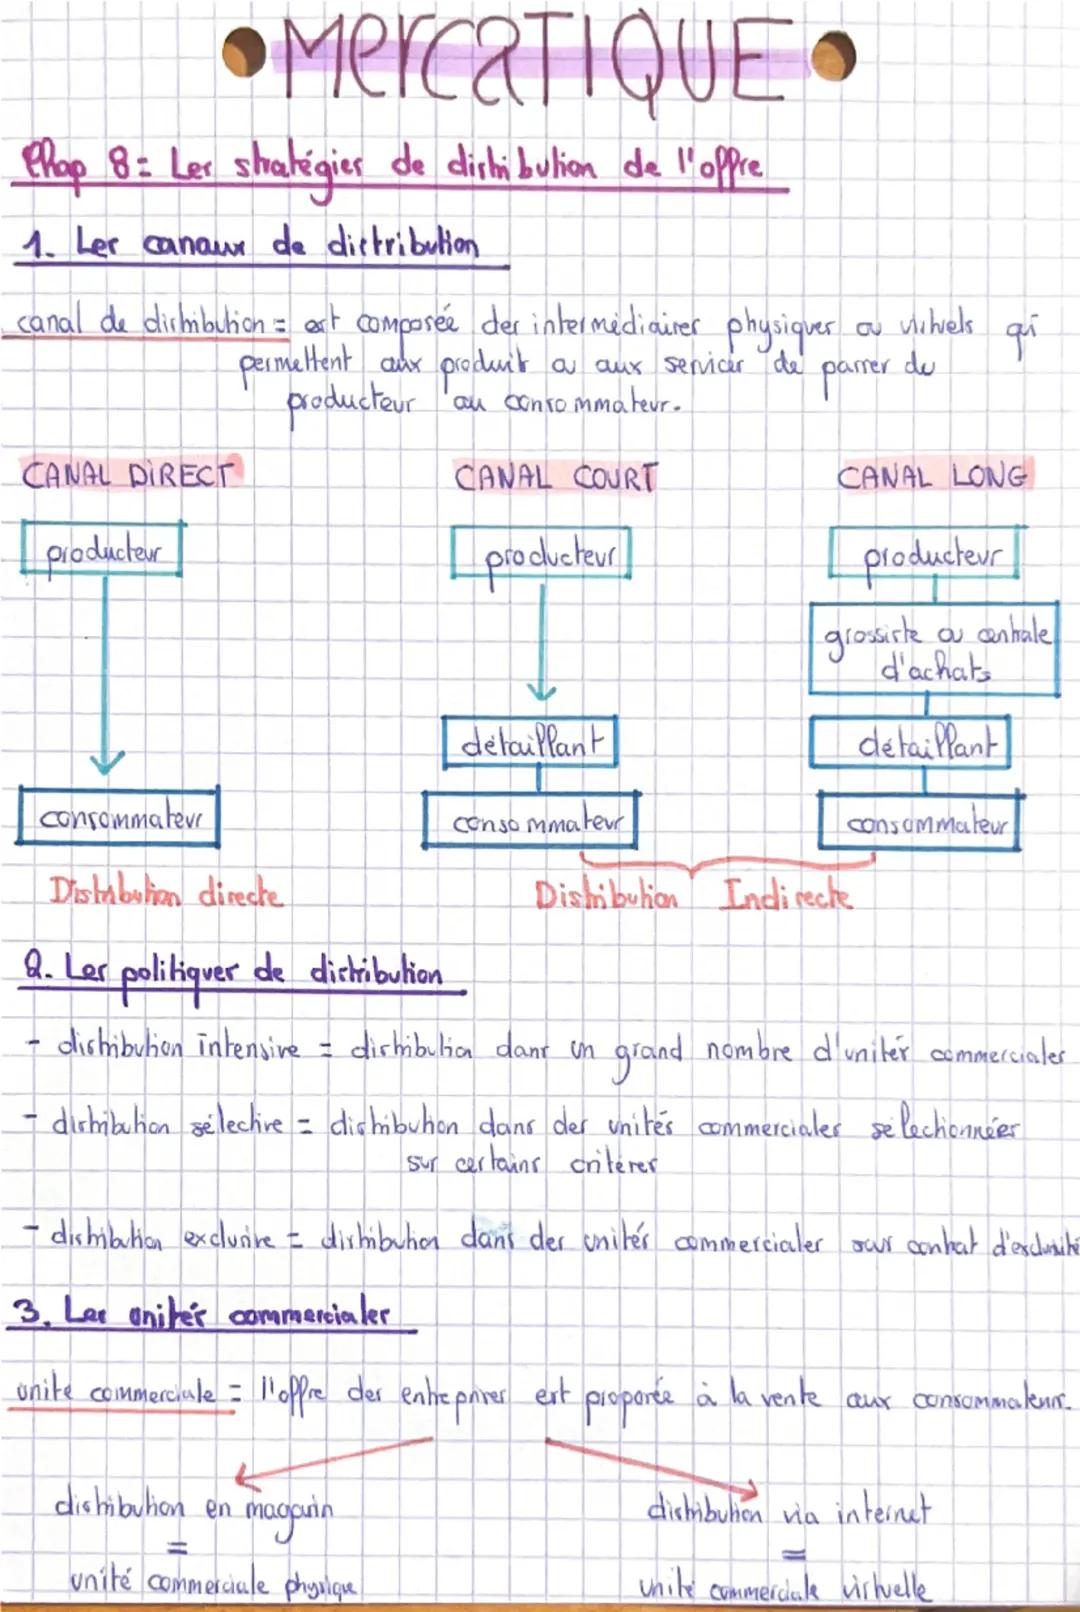 MercaTIQUE
Chap 8 = Les stratégies de distribution de l'offre
1. Les canaux de distribution
canal de distribution = est composée des intermédiaires physiques ou virtuels qui
permettent aux produit ou aux services de passer du
producteur au consommateur.
CANAL DIRECT
CANAL COURT
CANAL LONG
producteur
producteur
producteur
grossiste ou centrale
d'achats
détaillant
détaillant
consommateur
consommateur
consommateur
Distribution directe
Distribution Indirecte
2. Les politiques de distribution
- distribution intensive = distribution dans un grand nombre d'unités commerciales
- distribution sélective = distribution dans des unités commerciales sélectionnées
sur certains critères
- distribution exclusive = distribution dans des unités commerciales sous contrat d'exclusivité
3. Les unités commerciales
unité commerciale = l'offre des entreprises est proposée à la vente aux consommateurs.
distribution en magasin
distribution via internet
=
=
unité commerciale physique
unité commerciale virtuelle